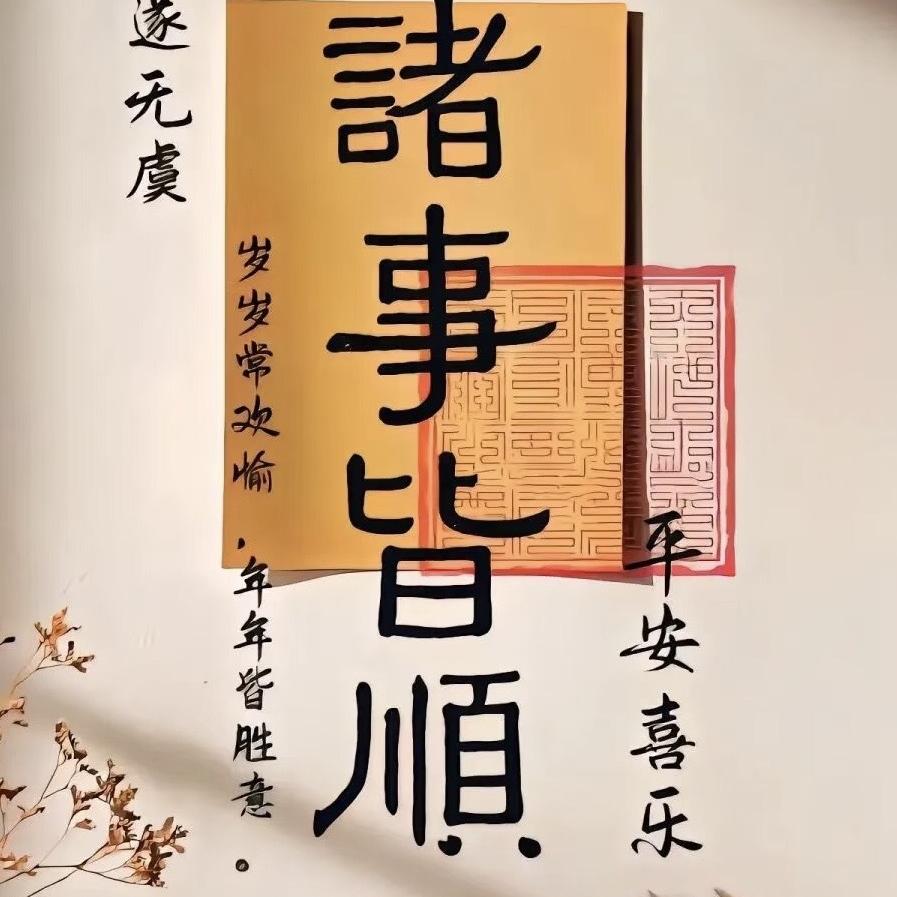 諸事皆順
平安喜乐
岁岁常欢愉,年年皆胜意。
遂无虞